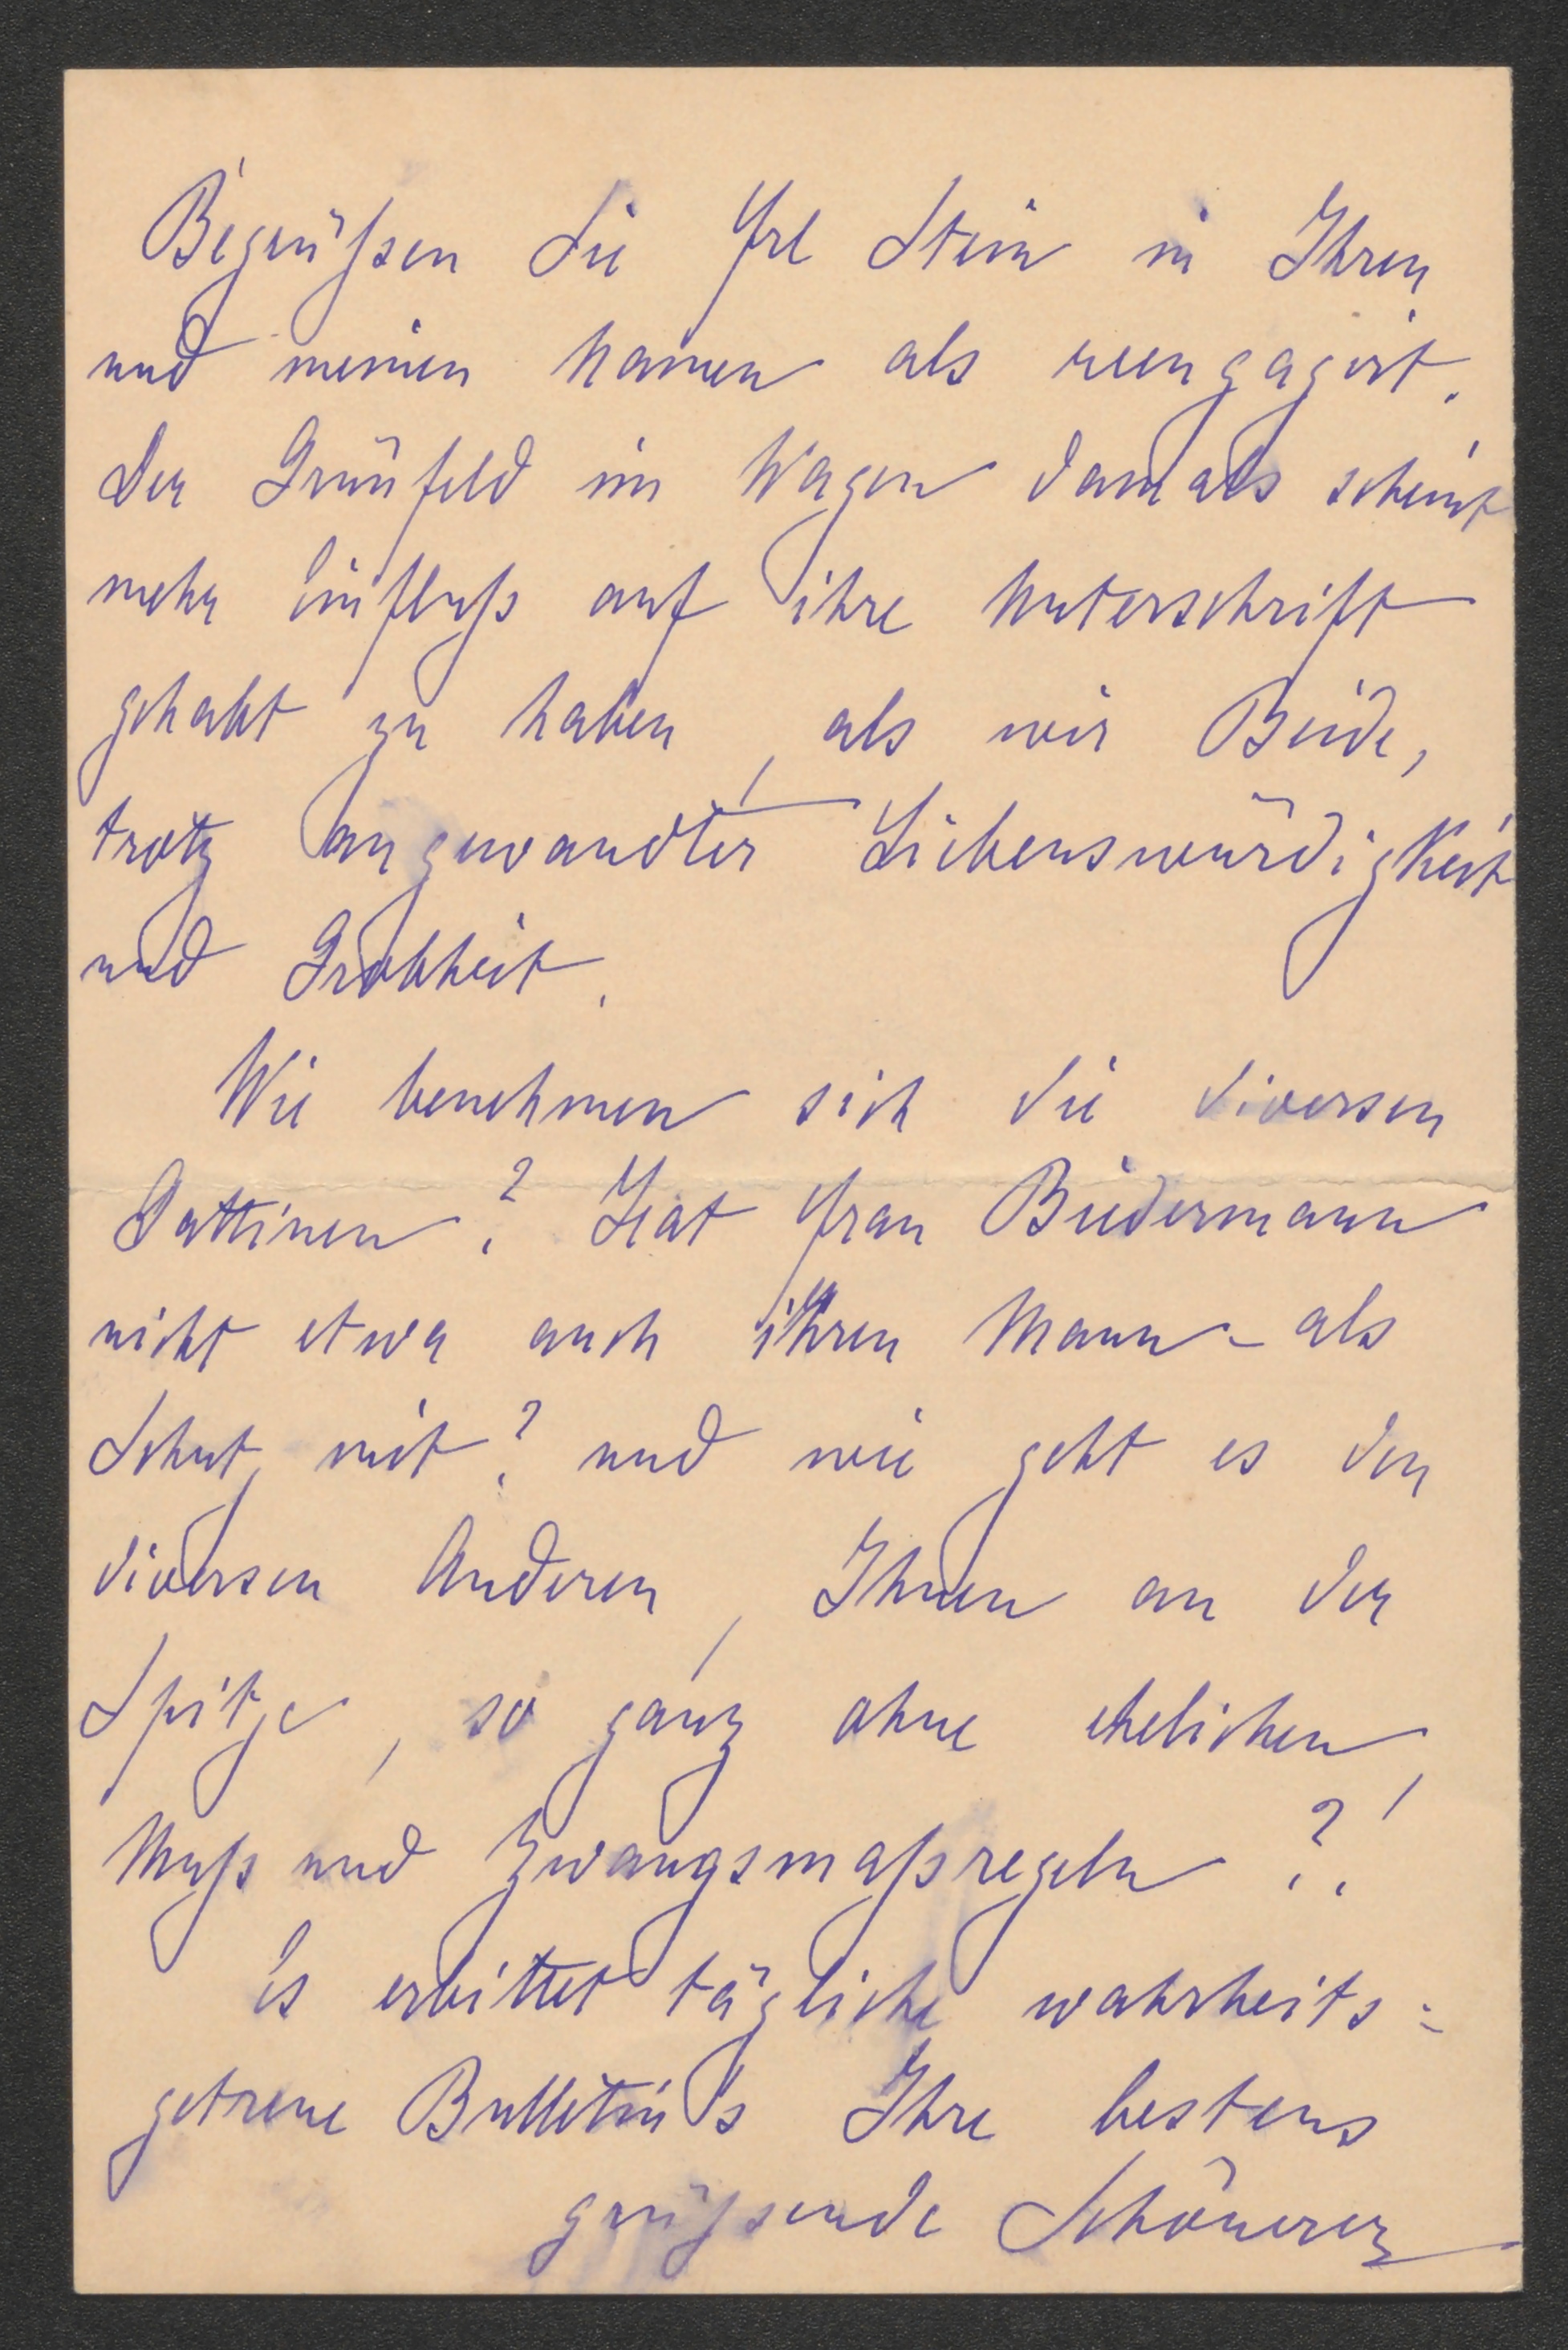 Begrüßen Sie Frl Stein in Ihren
und meinen Namen als reengagirt.
Der Grünfeld im Wagen damals scheint
mehr Einfluß auf ihre Unterschrift
gehabt zu haben, als wir Beide,
trotz angewandter Liebenswürdigkeit
und Grobheit.
Wie benehmen sich die diversen
Gattinen? Hat Frau Biedermann
nicht etwa auch ihren Mann - als
Schutz mit? und wie geht es den
diversen Anderen, Ihnen an der
Spitze, so ganz ohne ehelichen,
Muß und Zwangsmaßregeln?!
Es erbittet tägliche wahrheits=
getreue Bulletin's Ihre bestens
grüßende Schönerer